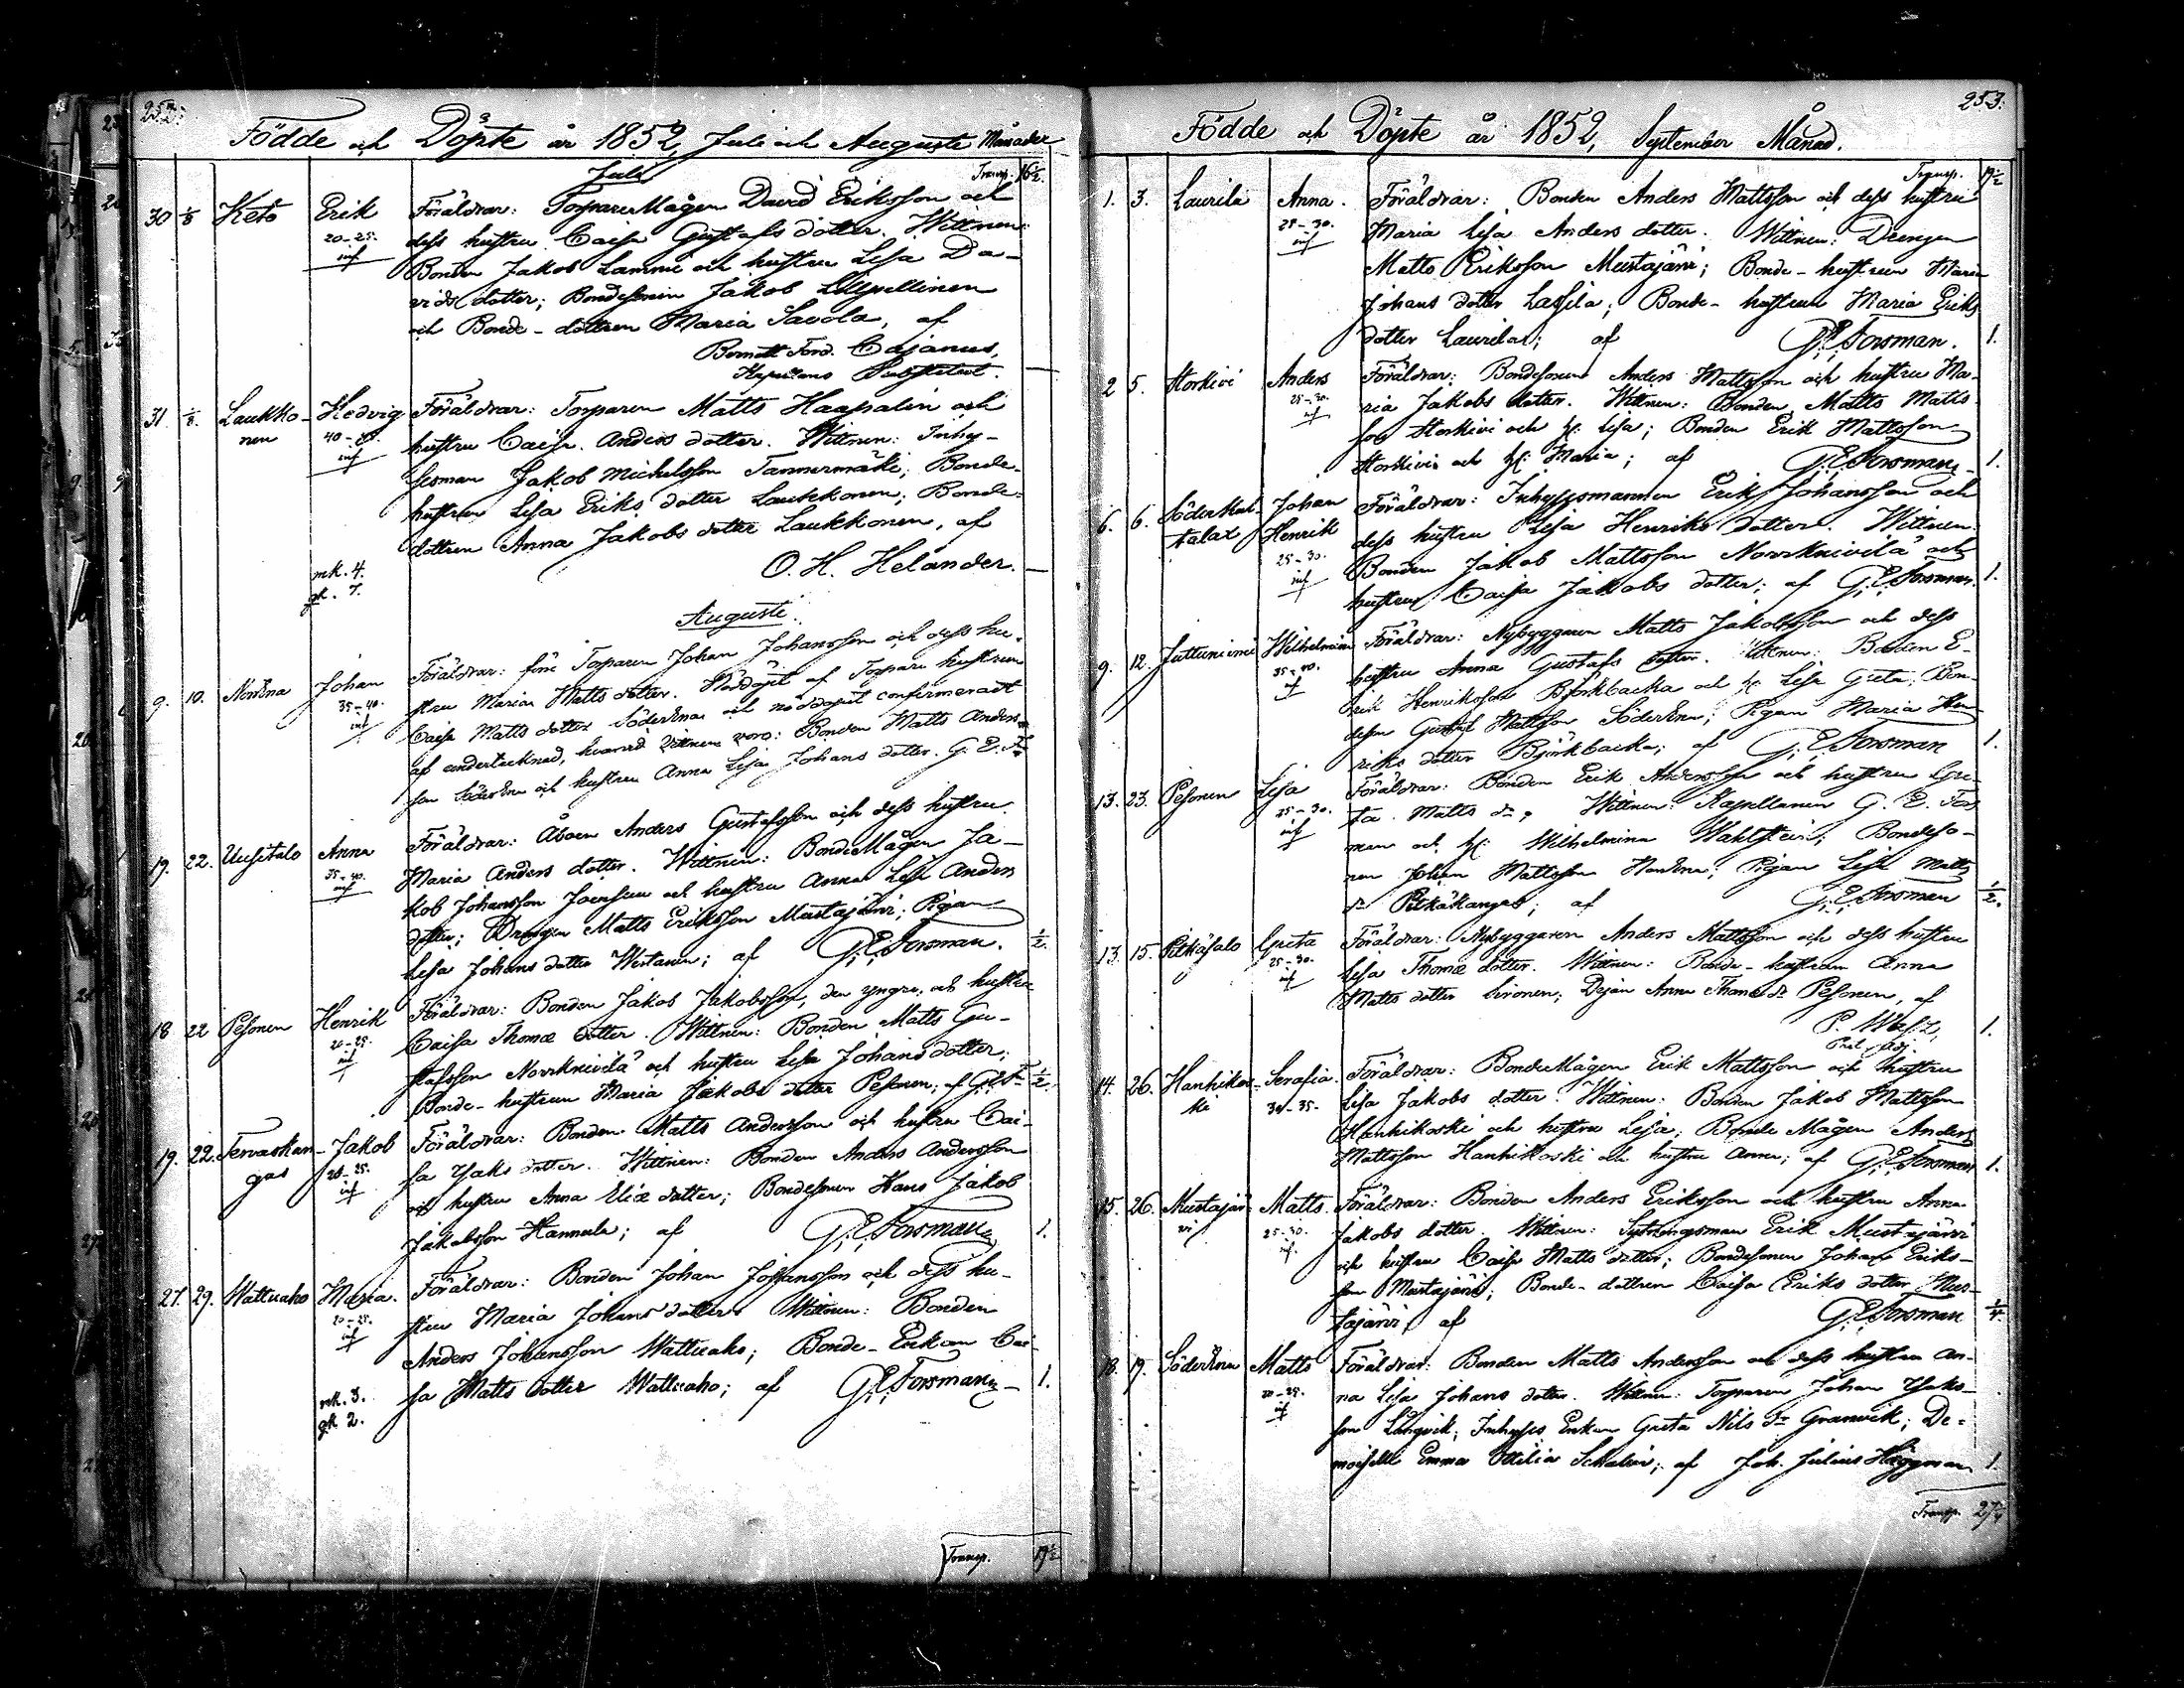 252.
Födde och Döpte år 1852, Juli och Augusti Månader
Juli
Transp. 16 1/2.
30 1/8 Keto Erik Föräldrar: Torpare Mågen David Eriksson och
20-25. dess hustru Caisa Gustafs dotter. Wittnen:
inf Bonden Jakob Lammi och hustru Lisa Da-
vids dotter; Bondesonen Jakob
och Bonde-dottren Maria Savola, af
Cajanus,
Kapellans Substitut.
31 1/8. Laukko- Hedvig Föräldrar: Torparen Matts Haapalin och
nen 40-45. hustru Caisa Anders dotter. Wittnen: Inhy-
inf sesman Jakob Michelsson Tannermäki; Bonde-
hustrun Lisa Eriks dotter Laukkonen; Bonde-
dottren Anna Jakobs dotter Laukkonen, af
mk. 4. O. H. Helander.
qk. 7.
Augusti.
9. 10. Norrena Johan Föräldrar: förre Torparen Johan Johansson och dess hu-
35-40. stru Maria Matts dotter. Nöddöpt af Torpare hustrun
inf Caisa Matts dotter Söderena och nöddopet confirmeradt
af undertecknad, hvarvid Vittnen voro: Bonden Matts Anders-
son Söderena och hustrun Anna Lisa Johans dotter. G. E. Fn
19. 22. Uusitalo Anna Föräldrar: Åboen Anders Gustafsson och dess hustru
35-40. Maria Anders dotter. Wittnen: BondeMågen Ja-
inf kob Johansson Joensuu och hustru Anna Lisa Anders
dotter; Drängen Matts Eriksson Mustajärvi; Pigan
Lisa Johans dotter Westanen; af G. E. Forsman. 1/2.
18 22 Pesonen Henrik Föräldrar: Bonden Jakob Jakobsson, den yngre, och hustru
20-25. Caisa Thomæ dotter. Wittnen: Bonden Matts Gu-
inf stafsson Norrknivilä och hustru Lisa Johans dotter;
Bonde-hustrun Maria Jakobs dotter Pesonen; af G. E. Fn 1/2.
19. 22. Tervaskan- Jakob Föräldrar: Bonden Matts Andersson och hustru Cai-
gas 20-25. sa Isaks dotter. Wittnen: Bonden Anders Andersson
inf och hustru Anna Eliæ dotter; Bondesonen Hans Jakob
Jakobsson Hannula; af G. E. Forsman 1.
27. 29. Wattuaho Maria. Föräldrar: Bonden Johan Johansson och dess hu-
20-25. stru Maria Johans dotter. Wittnen: Bonden
inf Anders Johansson Wattuaho; Bonde-Enkan Cai-
mk. 3. sa Matts dotter Wattuaho; af G. E. Forsman 1.
qk 2.
Transp. 19 1/2
253.
Födde och Döpte år 1852, September Månad.
Transp. 19 1/2
1. 3. Laurila Anna. Föräldrar: Bonden Anders Mattsson och dess hustru
25-30. Maria Lisa Anders dotter. Wittnen: Drengen
inf Matts Eriksson Mustajärvi; Bonde-hustrun Maria
Johans dotter Lassila; Bonde-hustrun Maria Eriks
dotter Laurila; af G. E. Forsman. 1.
2 5. Storkivi Anders Föräldrar: Bondesonen Anders Mattsson och hustru Ma-
25-30. ria Jakobs dotter. Wittnen: Bonden Matts Matts-
inf son Storkivi och h: Lisa; Bonden Erik Mattsson
Storkivi och h: Maria; af G. E. Forsman 1.
6. 6. Söderkul- Johan Föräldrar: Inhyssmannen Erik Johansson och
talat Henrik dess hustru Lisa Henriks dotter. Wittnen:
25-30. Bonden Jakob Mattsson Norrknivilä och
inf hustrun Caisa Jakobs dotter; af G. E. Forsman. 1.
9. 12. Juttuniemi Wilhelmina Föräldrar: Nybyggaren Matts Jakobsson och dess
35-40. hustru Anna Gustafs dotter. Wittnen: Bonden E-
inf rik Henriksson Björkbacka och h: Lisa Greta; Bon-
desen Gustaf Mattsson Söderena; Pigan Maria Hen-
riks dotter Björkbacka; af G. E. Forsman 1.
13. 23. Pesonen Lisa Föräldrar: Bonden Erik Andersson och hustru Gre-
25-30. ta Matts dr, Wittnen: Kapellanen G. E. Fors-
inf man och h: Wilhelmina Wahlstein; Bondeso-
nen Johan Mattsson; Pigan Lisa Matts
dr Pitkäkangas; af G. E. Forsman 1/2.
13. 15. Pitkäsalo Greta Föräldrar: Nybyggaren Anders Mattsson och dess hustru
25-30. Lisa Thomæ dotter. Wittnen: Bonde-hustrun Anna
inf Matts dotter Sironen; Pigan Anna Thomæ dr Pesonen, af
1.
14. 26. Hanhikos- Serafia. Föräldrar: BondeMågen Erik Mattsson och hustru
ki 30-35. Lisa Jakobs dotter. Wittnen: Bonden Jakob Mattsson
Hanhikoski och hustru Lisa; Bonde Mågen Anders
Mattsson Hanhikoski och hustru Anna; af G. E. Forsman 1.
15. 26. Mustajär- Matts. Föräldrar: Bonden Anders Eriksson och hustru Anna
vi 25-30. Jakobs dotter. Wittnen: Sytningsman Erik Mustajärvi
inf. och hustru Caisa Matts dotter; Bondesonen Johan Eriks-
son Mustajärvi; Bonde-dottren Caisa Eriks dotter Mus-
tajärvi, af G. E. Forsman
18. 19. Söderena Matts Föräldrar: Bonden Matts Andersson och dess hustru An-
20-25. na Lisa Johans dotter. Wittnen: Torparen Johan Isaks-
inf son Långvik; Inhyses Enkan Greta Nils dr Granvik; De-
moiselle Emma Ottilia Schalin; af Joh. Julius Häggman 1.
Transp.